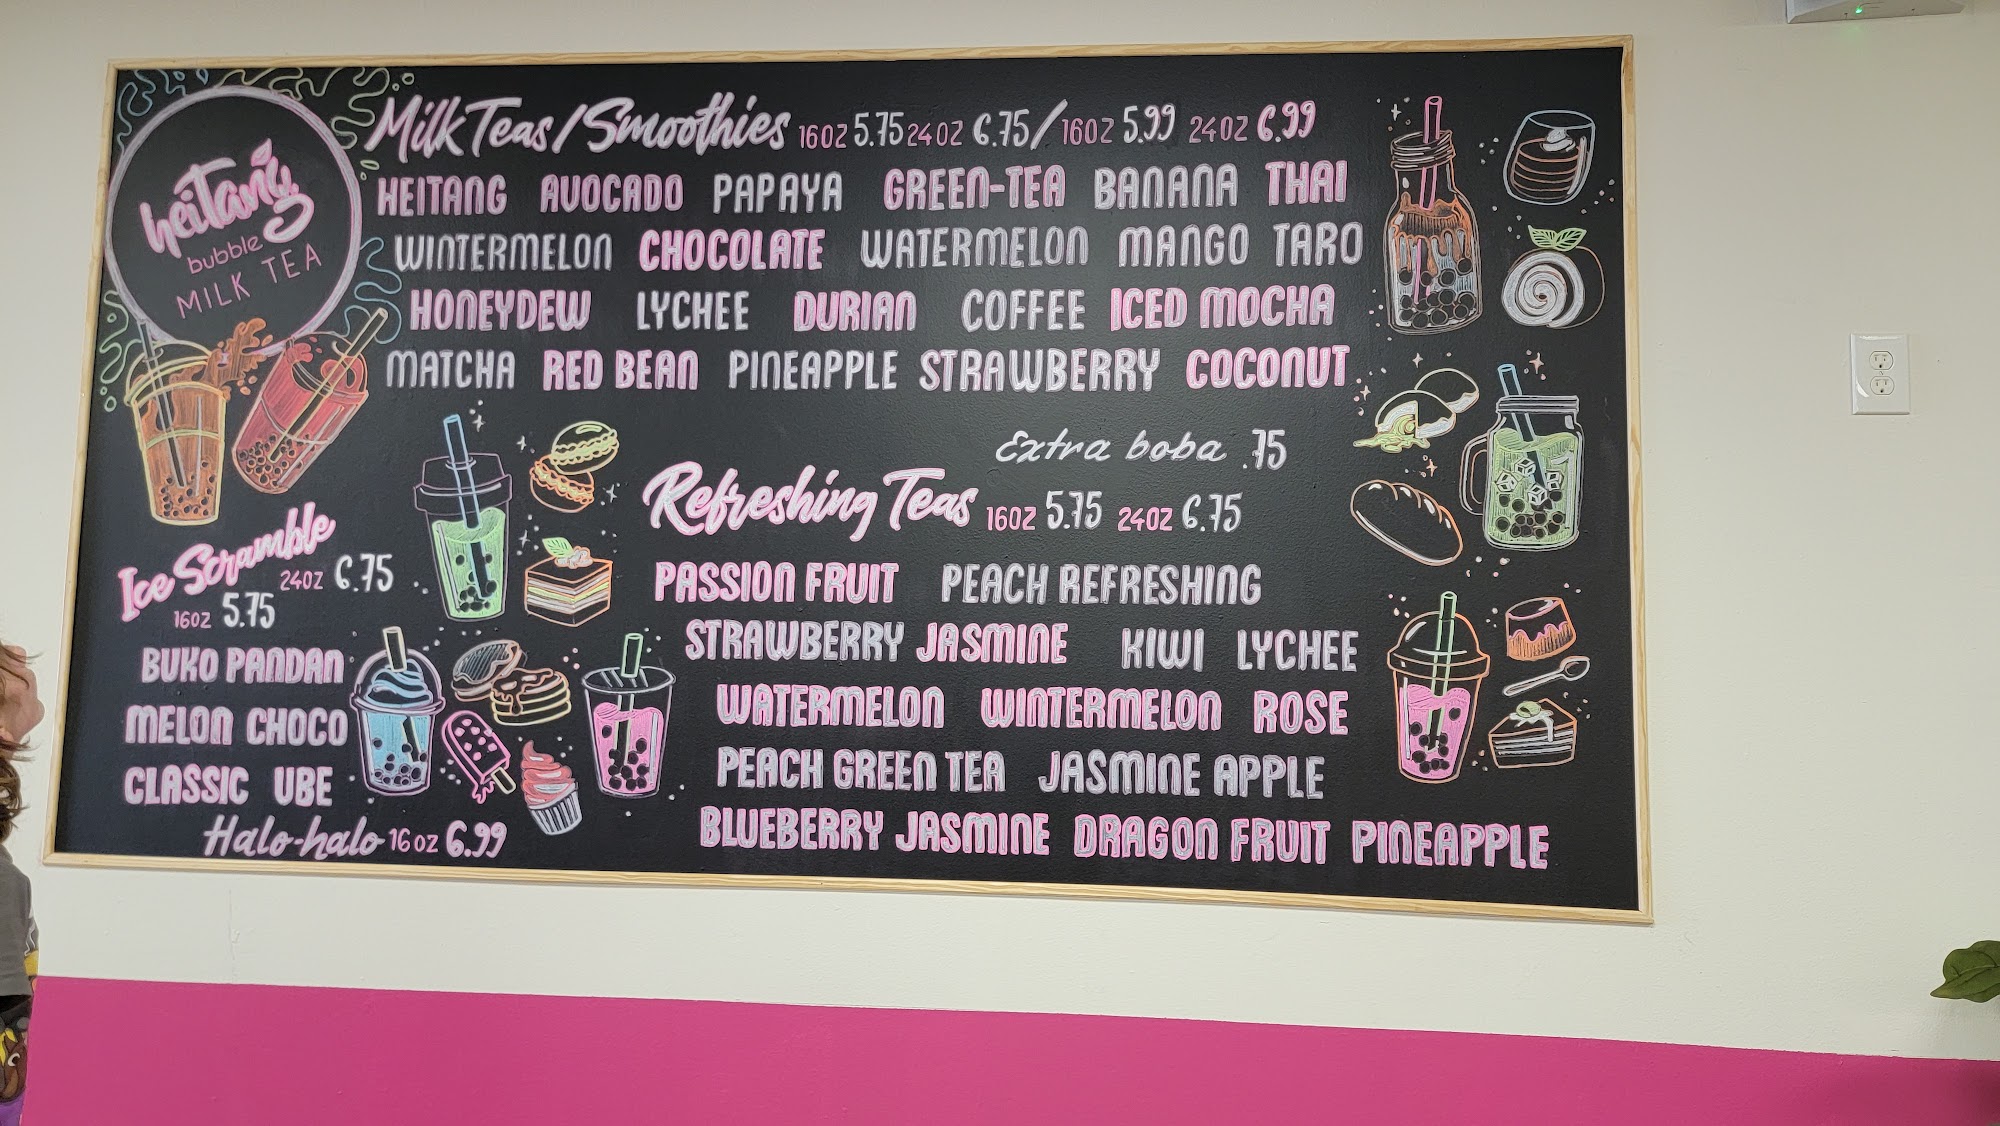 heitang
bubble
MILK TEA
Milk Teas/Smoothies 16OZ 5.75 24OZ 6.75/16OZ 5.99 24OZ 6.99
HEITANG AVOCADO PAPAYA GREEN-TEA BANANA THAI
WINTERMELON CHOCOLATE WATERMELON MANGO TARO
HONEYDEW LYCHEE DURIAN COFFEE ICED MOCHA
MATCHA RED BEAN PINEAPPLE STRAWBERRY COCONUT
Extra boba .75
Refreshing Teas 16OZ 5.75 24OZ 6.75
PASSION FRUIT PEACH REFRESHING
STRAWBERRY JASMINE KIWI LYCHEE
WATERMELON WINTERMELON ROSE
PEACH GREEN TEA JASMINE APPLE
BLUEBERRY JASMINE DRAGON FRUIT PINEAPPLE
Ice Scramble
24OZ 6.75
16OZ 5.75
BUKO PANDAN
MELON CHOCO
CLASSIC UBE
Halo-halo 16OZ 6.99